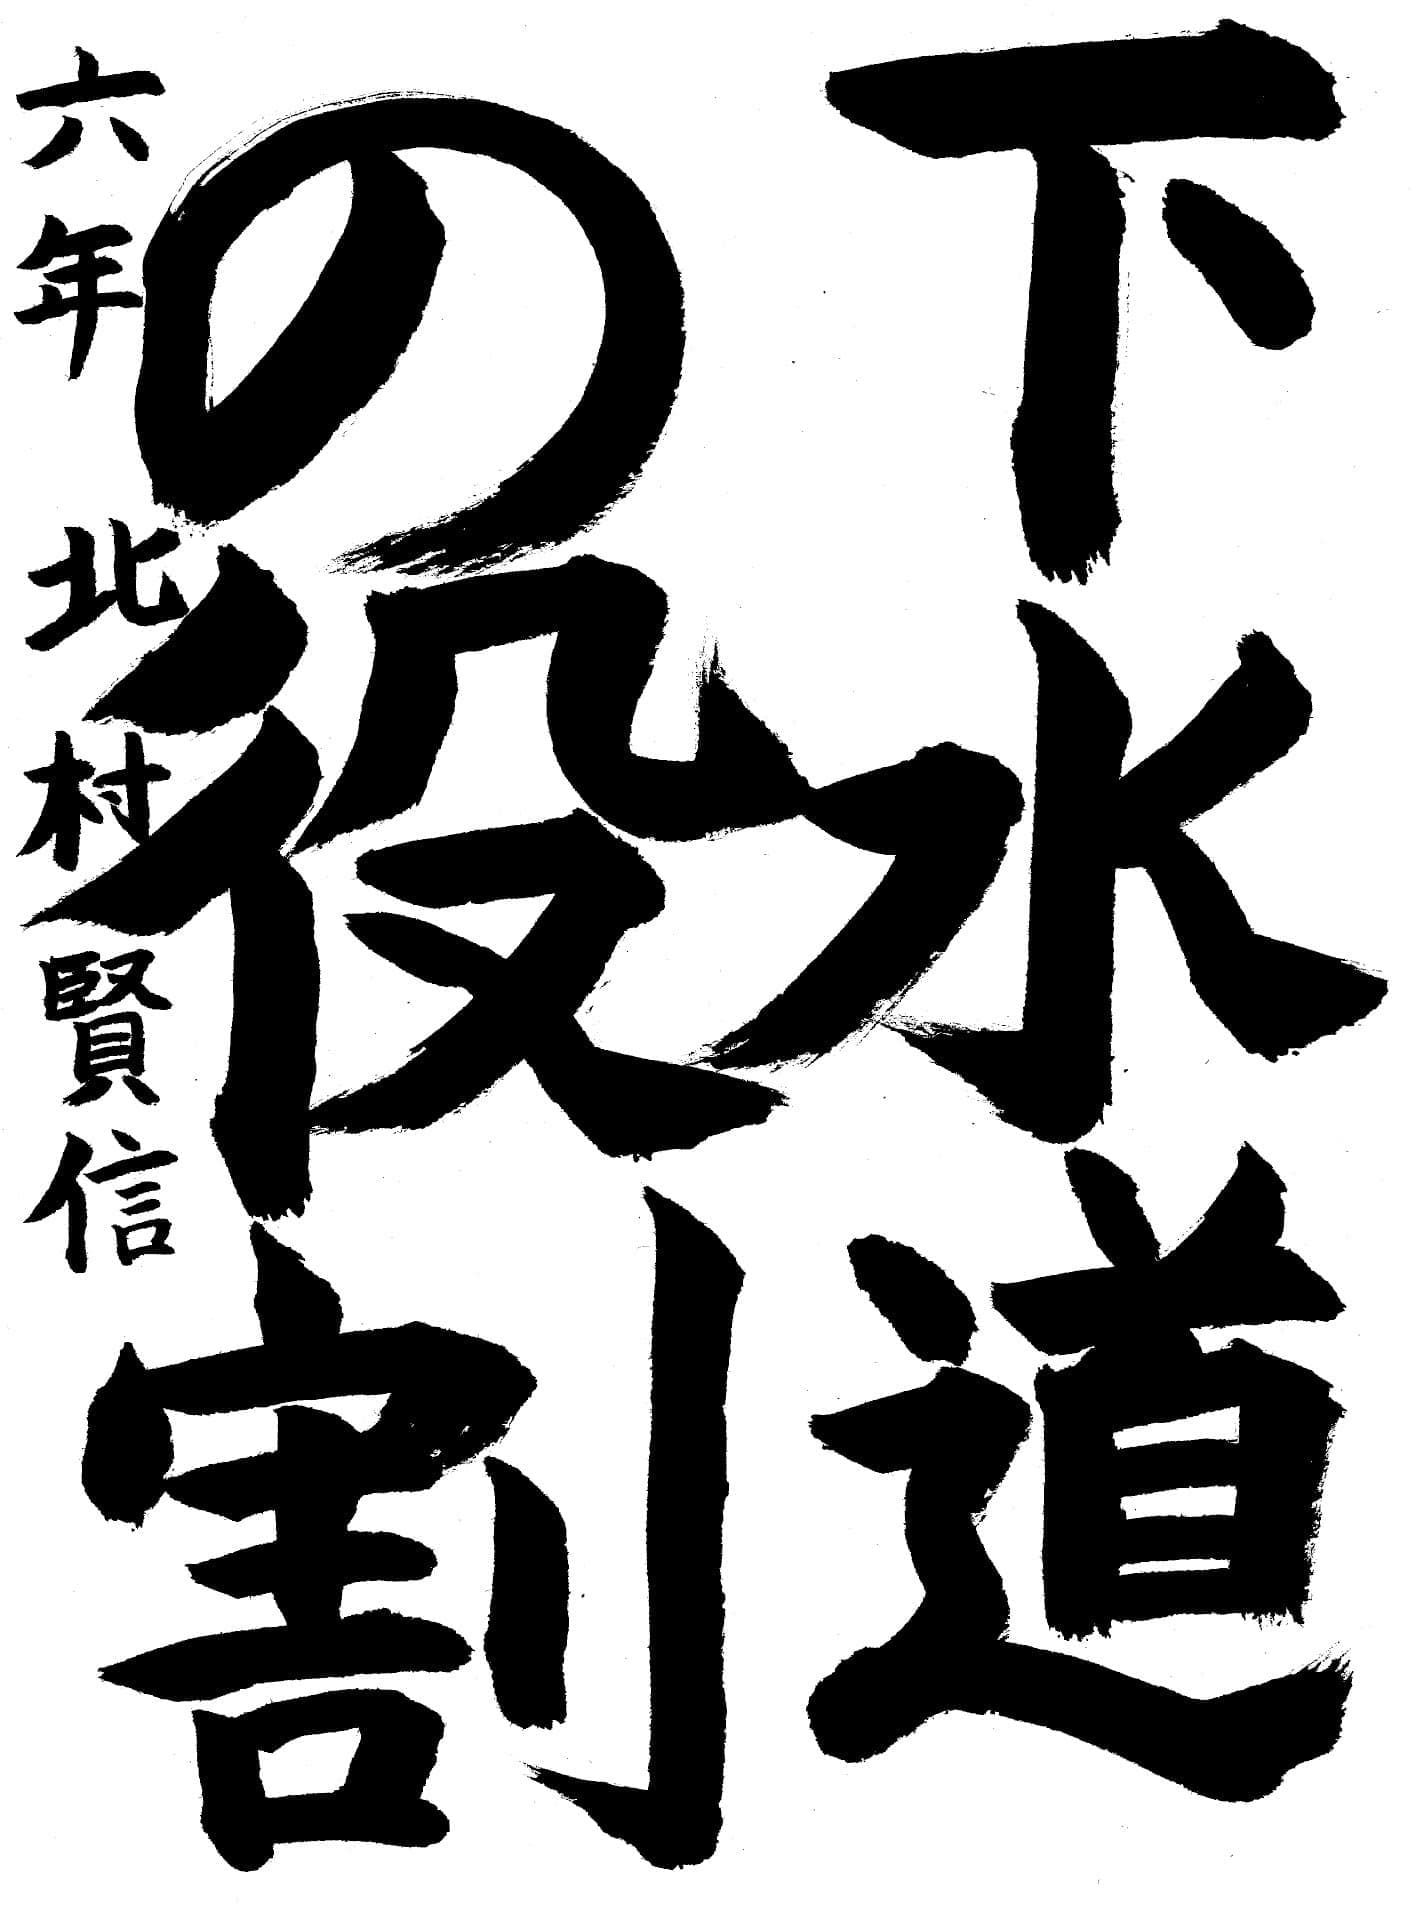 下水道
の役割
六年 北村賢信